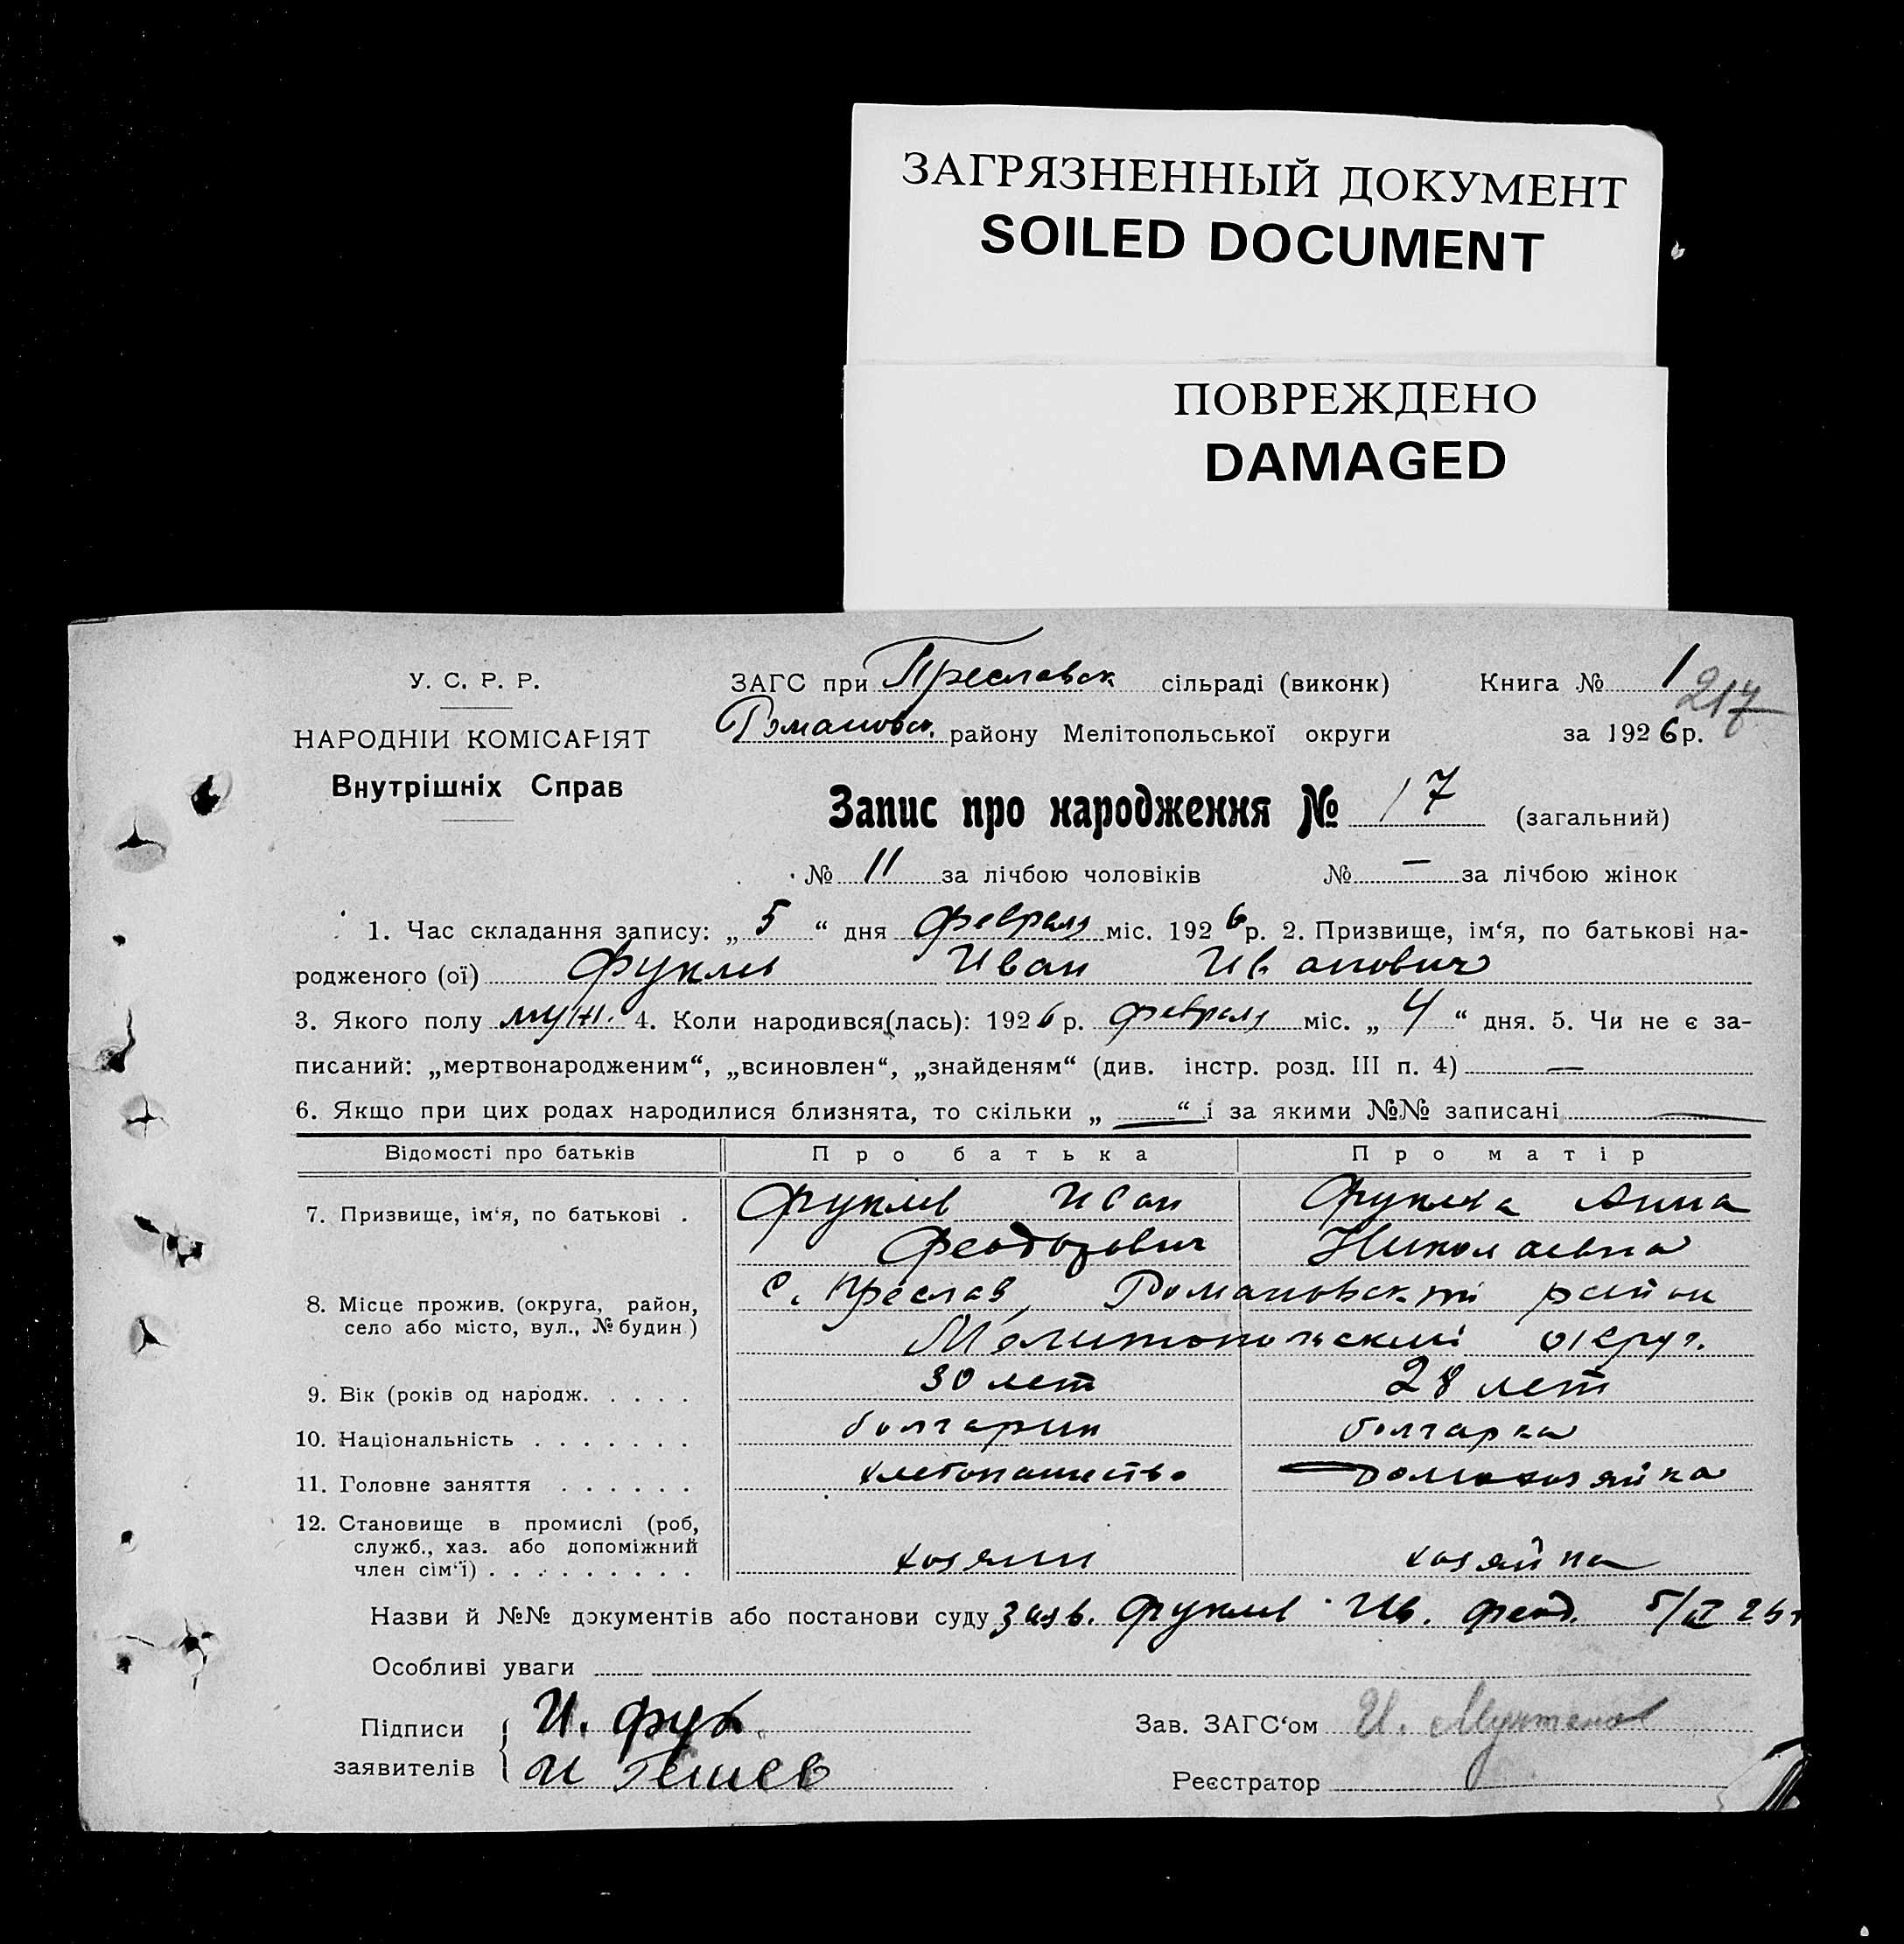 ЗАГРЯЗНЕННЫЙ ДОКУМЕНТ
SOILED DOCUMENT
ПОВРЕЖДЕНО
DAMAGED
У. С. Р. Р.
НАРОДНІЙ КОМІСАРІЯТ
Внутрішніх Справ
ЗАГС при Преславск сільраді (виконк) Книга № 1
217
Романовск. району Мелітопольської округи за 1926 р.
Запис про народження № 17 (загальний)
№ 11 за лічбою чоловіків № — за лічбою жінок
1. Час складання запису: „ 5 “ дня февраля міс. 1926 р. 2. Призвище, ім‘я, по батькові на-
родженого (ої) Фуклев Иван Иванович
3. Якого полу муж. 4. Коли народився(лась): 1926 р. февраля міс. „ 4 “ дня. 5. Чи не є за-
писаний: „мертвонародженим“, „всиновлен“, „знайденям“ (див. інстр. розд. III п. 4) —
6. Якщо при цих родах народилися близнята, то скільки „ — “ і за якими №№ записані —
Відомості про батьків Про батька Про матір
7. Призвище, ім‘я, по батькові . Фуклев Иван Фуклева Анна
Феодорович Николаевна
8. Місце прожив. (округа, район, с. Преслав, Романовский район
село або місто, вул., № будин) Мелитопольский округ.
9. Вік (років од народж. . . . . 30 лет 28 лет
10. Національність . . . . . . . болгарин болгарка
11. Головне заняття . . . . . . хлебопашество домохозяйка
12. Становище в промислі (роб,
служб., хаз. або допоміжний
член сім‘ї) . . . . . . . . . хозяин хозяйка
Назви й №№ документів або постанови суду заяв. Фуклев Ив. Феод. 5/II 26 г
Особливі уваги
Підписи И. Фук Зав. ЗАГС‘ом И.
заявителів И Гешев Реєстратор